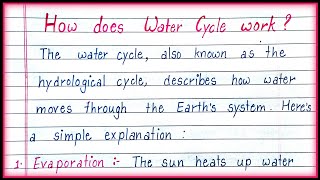 How does Water Cycle work?
The water cycle, also known as the
hydrological cycle, describes how water
moves through the Earth's system. Here's
a simple explanation :
1. Evaporation :- The sun heats up water